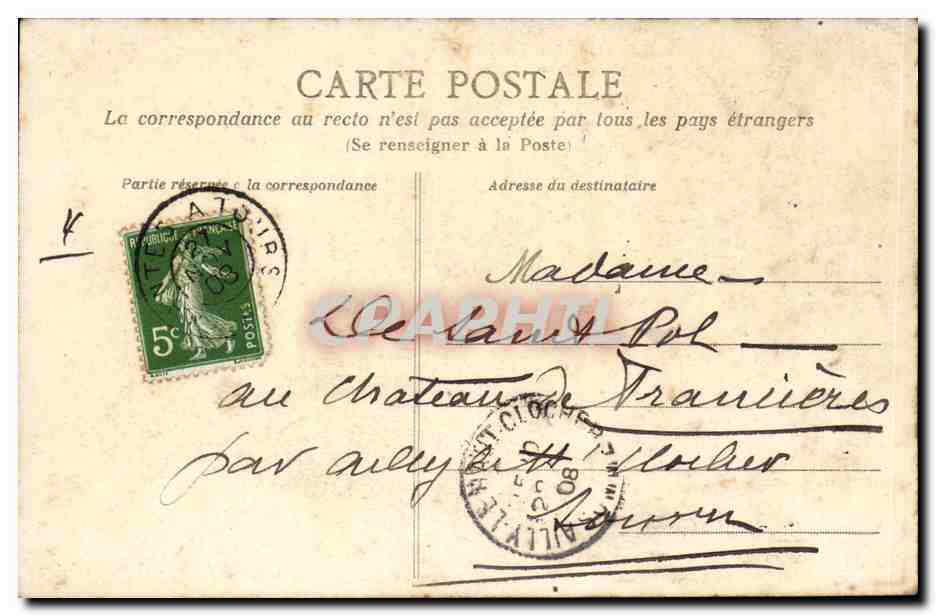 CARTE POSTALE
La correspondance au recto n'est pas acceptée par tous les pays étrangers
(Se renseigner à la Poste)
Partie réservée à la correspondance
Adresse du destinataire
4
A TOURS
08
REPUBLIQUE FRANÇAISE
5c
POSTES
CPAPHIL
Madame
De Saint Pol
au Château de
par Ailly Ht Clocher
Somme
AILLY-LE-HAUT-CLOCHER
08